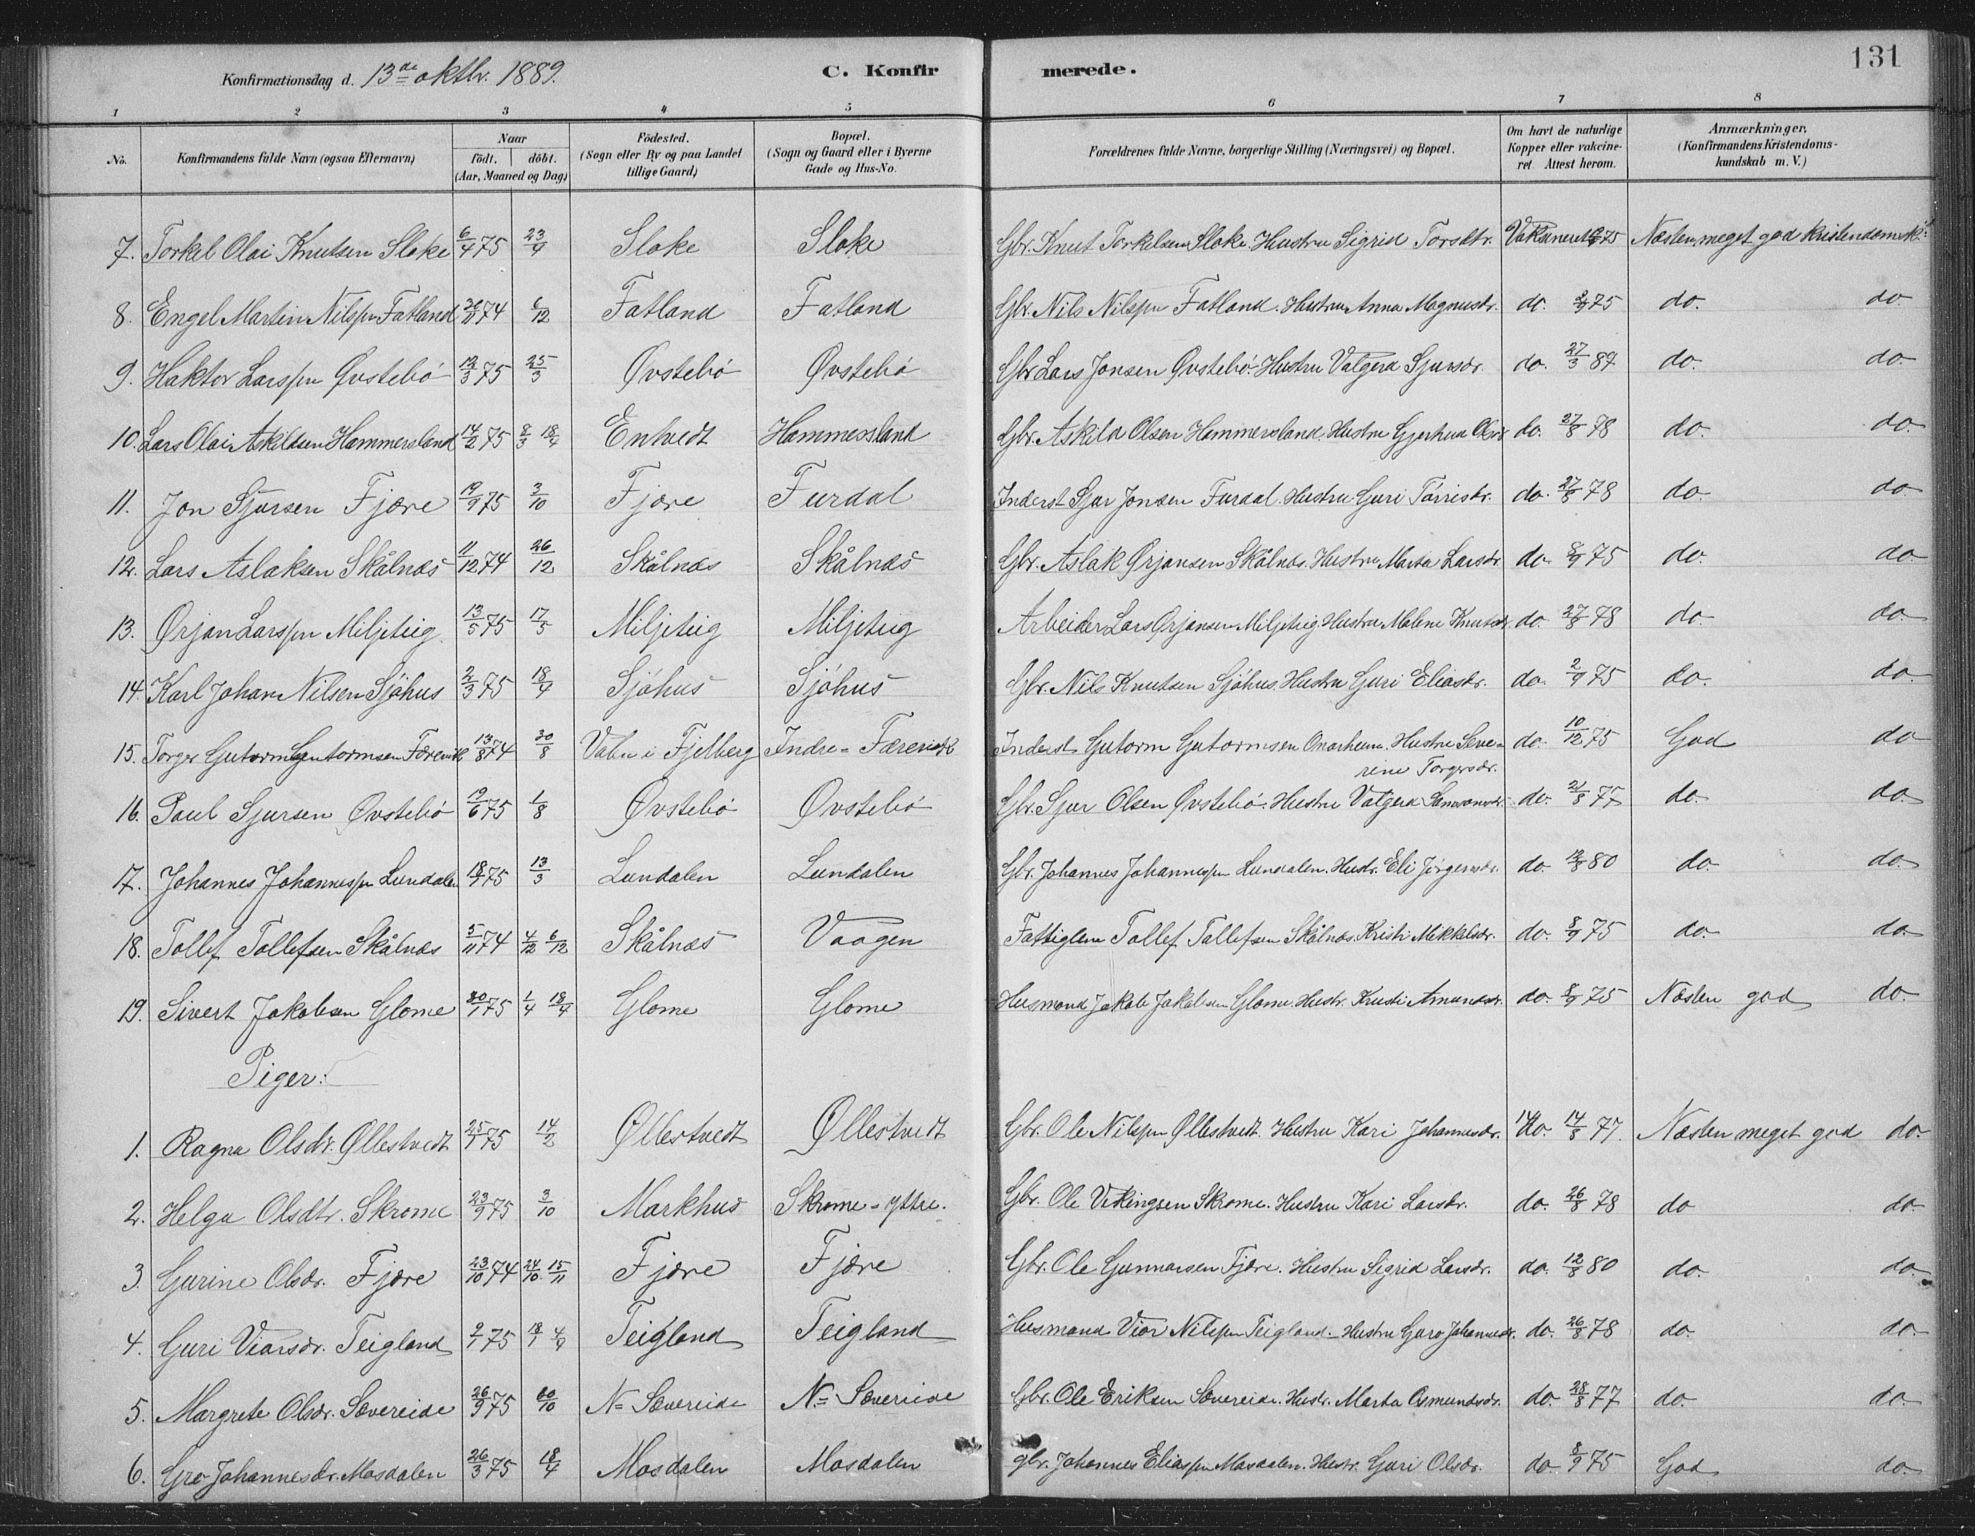 131
Konfirmationsdag d. 13de oktbr. 1889. C. Konfirmerede.
1 2 3 4 5 6 7 8
No. Konfirmandens fulde Navn (ogsaa Efternavn) Naar födt. döbt. (Aar, Maaned og Dag) Födested. (Sogn eller By og paa Landet tillige Gaard) Bopæl. (Sogn og Gaard eller i Byerne Gade og Hus-No. Forældrenes fulde Navne, borgerlige Stilling (Næringsvei) og Bopæl. Om havt de naturlige Kopper eller vakcineret. Attest herom. Anmærkninger. (Konfirmandens Kristendomskundskab m. V.)
7. Torkel Olai Knutsen Sloke 6/4 75 23/4 Sloke Sloke Gbr. Knut Torkelsen Sloke. Hustru Sigrid Torsdtr. Vakcineret 75 Næsten meget god Kristendomsk.
8. Engel Martin Nilspn Fatland 74 6/12 Fatland Fatland Gbr. Nils Nilspn Fatland. Hustru Anna Magnusdr. do. 75 do. do
9. Haktor Larspn Øvstebö 12/3 75 25/3 Øvstebö Øvstebö Gbr. Lars Jonsen Øvstebö. Hustru Valgerd Sjursdr. do. 27/3 89 do. do.
10. Lars Olai Askildsen Hammersland 14/2 75 8/3 18/4 Enhvedt Hammersland Gbr. Askild Olsen Hammersland. Hustru Gjerhud Olsdr do. 27/8 78 do. do.
11. Jon Sjursen Fjære 19/9 75 3/10 Fjære Furdal Inderst Sjur Jonsen Furdal. Hustru Guri Törrisdr. do. 27/8 78 do. do.
12. Lars Aslaksen Skålnæs 11/12 74 26/12 Skålnæs Skålnæs Gbr. Aslak Ørjansen Skålnæs. Hustru Marta Larsdr. do. 8/9 75 do. do
13. Ørjan Larspn Miljeteig 13/5 75 17/5 Miljeteig Miljeteig Arbeider Lars Ørjansen Miljeteig Hustru Malene Knutsdr do. 27/8 78 do. do.
14. Karl Johan Nilsen Sjöhus 2/3 75 18/4 Sjöhus Sjöhus Gbr. Nils Knutsen Sjöhus. Hustru Guri Eliasdr. do. 2/9 75 do. do.
15. Torger Gutorm Gutormsen Færevik 13/8 74 30/8 i Fjelberg Indre-Færevik Inderst Gutorm Gutormsen Onarheim. Hustru Severine Torgersdr. do. 10/12 75 God do
16. Paul Sjursen Øvstebö 19/6 75 1/8 Øvstebö Øvstebö Gbr. Sjur Olsen Øvstebö. Hustru Valgerd Samsonsdr. do. 21/8 77 do. do.
17. Johannes Johannespn Lundalen 75 13/3 Lundalen Lundalen Gbr. Johannes Johannespn Lundalen. Hustr. Eli Jörgensdr. do. 12/8 80 do. do
18. Tollef Tollefsen Skålnæs 5/11 74 4/12 6/12 Skålnæs Vaagen Fattiglem Tollef Tollefsen Skålnæs. Kristi Mikkelsdr. do. 8/9 75 do. do.
19. Sivert Jakobsen Glome 75 1/4 18/4 Glome Glome Husmand Jakob Jakobsen Glome. Hustr. Kristi Amundsdr. do. 8/9 75 Næsten god do.
Piger:
1. Ragna Olsdr. Øllestvedt 25/1 75 14/2 Øllestvedt Øllestvedt Gbr. Ole Nilspn Øllestvedt. Hustru Kari Johannesdr. do. 14/8 77. Næsten meget god do.
2. Helga Olsdtr. Skrome 23/9 75 3/10 Markhus Skrome-yttre. Gbr. Ole Vikingsen Skrome. Hustru Kari Larsdr. do. 26/8 78 do do.
3. Gurine Olsdr. Fjære 23/10 74 24/10 15/11 Fjære Fjære Gbr. Ole Gunnarsen Fjære. Hustru Sigrid Larsdr. do. 12/8 80 do. do.
4. Guri Viarsdr. Teigland 2/1 75 Teigland Teigland Husmand Viar Nilspn Teigland. Hustru Garo Johannesdr. do. 26/8 78 do. do.
5. Margrete Olsdr. Sævereide 26/9 75 N= Sævereide N= Sævereide Gbr. Ole Eriksen Sævereide. Hustr. Marta Osmundsdr. do. 28/8 77 do. do.
6. Gro Johannesdr. Mosdalen 26/3 75 18/4 Mosdalen Mosdalen gbr. Johannes Eliaspn Mosdalen. Hustr. Guri Olsdr. do. 8/9 75 God do.